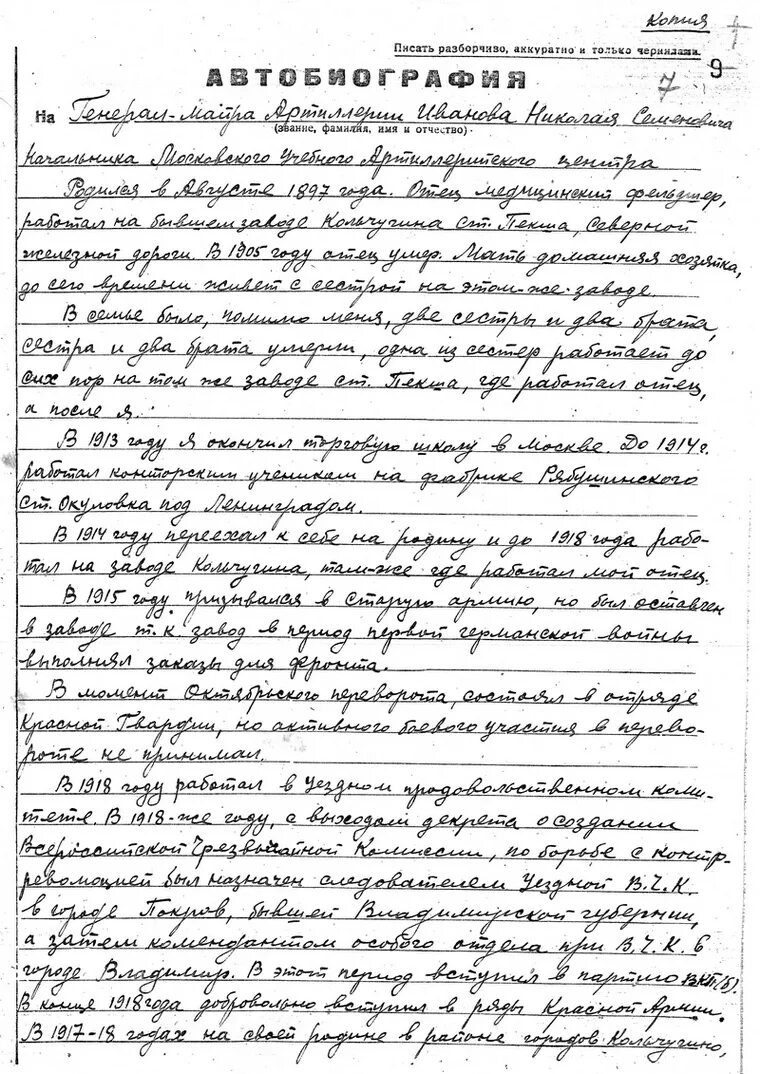 Копия
Писать разборчиво, аккуратно и только чернилами.
9
7
АВТОБИОГРАФИЯ
На Генерал-майра Артиллерии Иванова Николая Семеновича
(звание, фамилия, имя и отчество)
Начальника Московского Учебного Артиллерийского центра
Родился в Августе 1897 года. Отец медицинский фельдшер,
работал на бывшем заводе Кольчугина ст. Пекша, Северной
железной дороги. В 1905 году отец умер. Мать домашняя хозяйка,
до сего времени живет с сестрой на этом-же заводе.
В семье было, помимо меня, две сестры и два брата,
сестра и два брата умерли, одна из сестер работает до
сих пор на том же заводе ст. Пекша, где работал отец,
а после я.
В 1913 году я окончил торговую школу в Москве. До 1914 г.
работал конторским учеником на фабрике Рябушинского
ст. Окуловка под Ленинградом.
В 1914 году переехал к себе на родину и до 1918 года рабо-
тал на заводе Кольчугина, там-же где работал мой отец.
В 1915 году призывался в старую армию, но был оставлен
в заводе т.к. завод в период первой германской войны
выполнял заказы для фронта.
В момент Октябрьского переворота, состоял в отряде
Красной Гвардии, но активного боевого участия в перево-
роте не принимал.
В 1918 году работал в Уездном продовольственном коми-
тете. В 1918-же году, с выходом декрета о создании
Всероссийской Чрезвычайной Комиссии, по борьбе с контр-
революцией был назначен следователем Уездной В.Ч.К.
в городе Покров, бывшей Владимирской губернии,
а затем комендантом особого отдела при В.Ч.К. в
городе Владимир. В этот период вступил в партию ВКП(б).
В конце 1918 года добровольно вступил в ряды Красной Армии.
В 1917-18 годах на своей родине в районе городов Кольчугино,